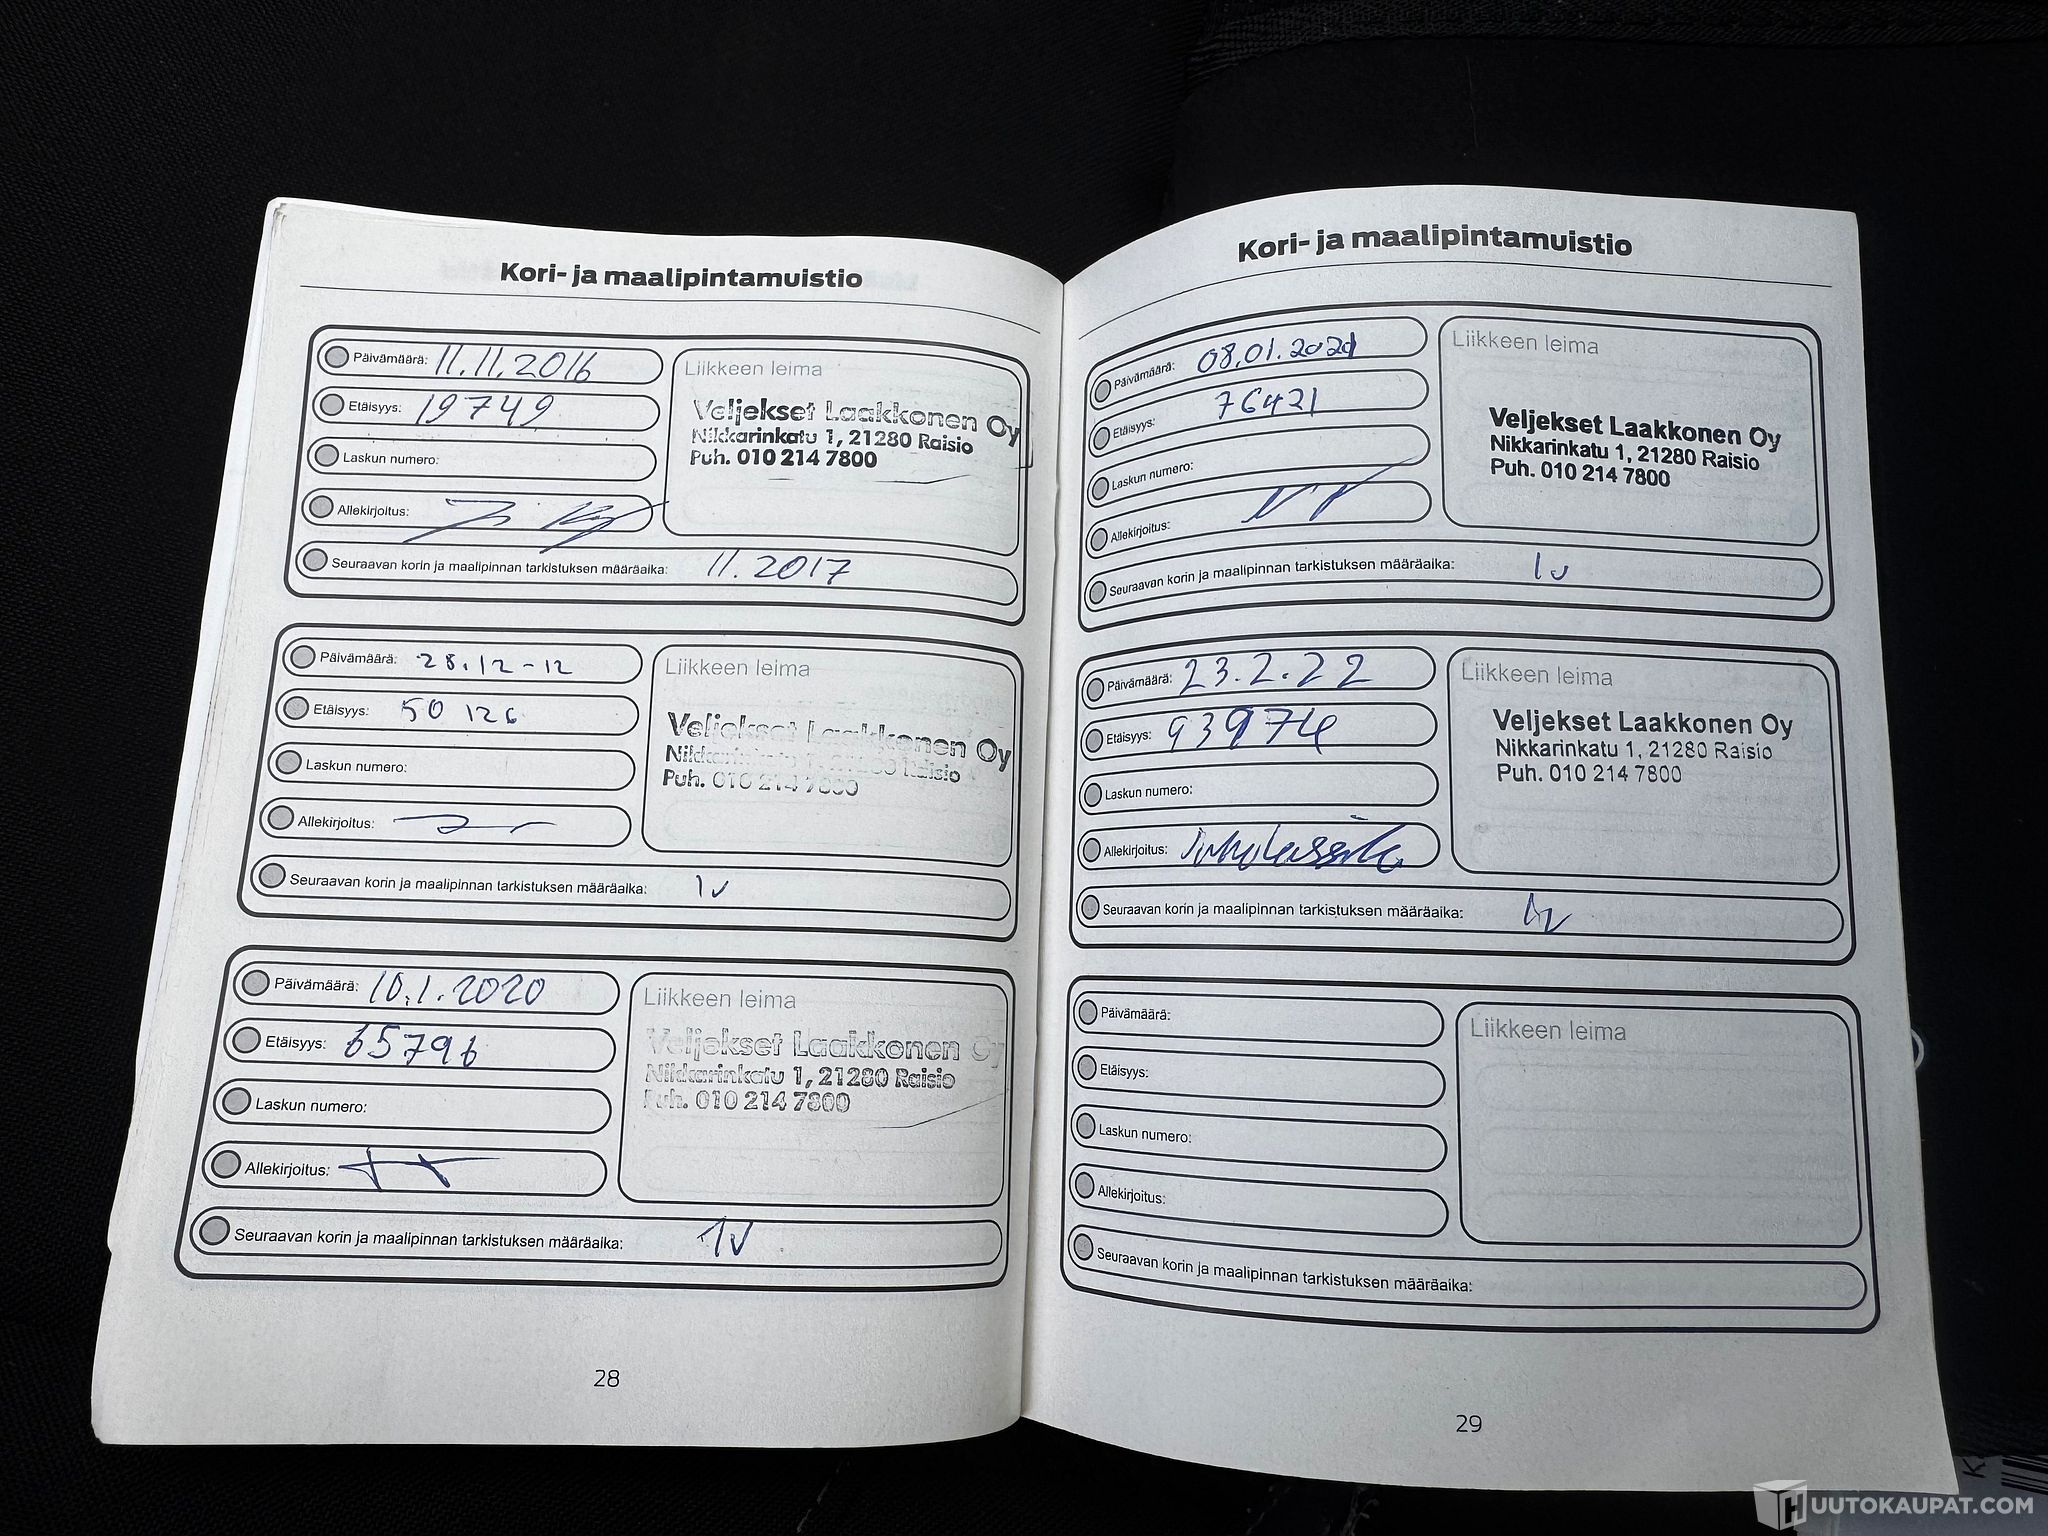 Kori- ja maalipintamuistio
Päivämäärä: 11.11.2016
Etäisyys: 19749
Laskun numero:
Allekirjoitus:
Liikkeen leima
Veljekset Laakkonen Oy
Nikkarinkatu 1, 21280 Raisio
Puh. 010 214 7800
Seuraavan korin ja maalipinnan tarkistuksen määräaika: 11.2017
Päivämäärä: 28.12-12
Etäisyys: 50 126
Laskun numero:
Allekirjoitus:
Liikkeen leima
Veljekset Laakkonen Oy
Nikkarinkatu 1, 21280 Raisio
Puh. 010 214 7800
Seuraavan korin ja maalipinnan tarkistuksen määräaika: 1v
Päivämäärä: 10.1.2020
Etäisyys: 65796
Laskun numero:
Allekirjoitus:
Liikkeen leima
Veljekset Laakkonen Oy
Nikkarinkatu 1, 21280 Raisio
Puh. 010 214 7800
Seuraavan korin ja maalipinnan tarkistuksen määräaika: 1v
28
Kori- ja maalipintamuistio
Päivämäärä: 08.01.2021
Etäisyys: 76421
Laskun numero:
Allekirjoitus:
Liikkeen leima
Veljekset Laakkonen Oy
Nikkarinkatu 1, 21280 Raisio
Puh. 010 214 7800
Seuraavan korin ja maalipinnan tarkistuksen määräaika: 1v
Päivämäärä: 23.2.22
Etäisyys: 93974
Laskun numero:
Allekirjoitus:
Liikkeen leima
Veljekset Laakkonen Oy
Nikkarinkatu 1, 21280 Raisio
Puh. 010 214 7800
Seuraavan korin ja maalipinnan tarkistuksen määräaika: 1v
Päivämäärä:
Etäisyys:
Laskun numero:
Allekirjoitus:
Liikkeen leima
Seuraavan korin ja maalipinnan tarkistuksen määräaika:
29
HUUTOKAUPAT.COM